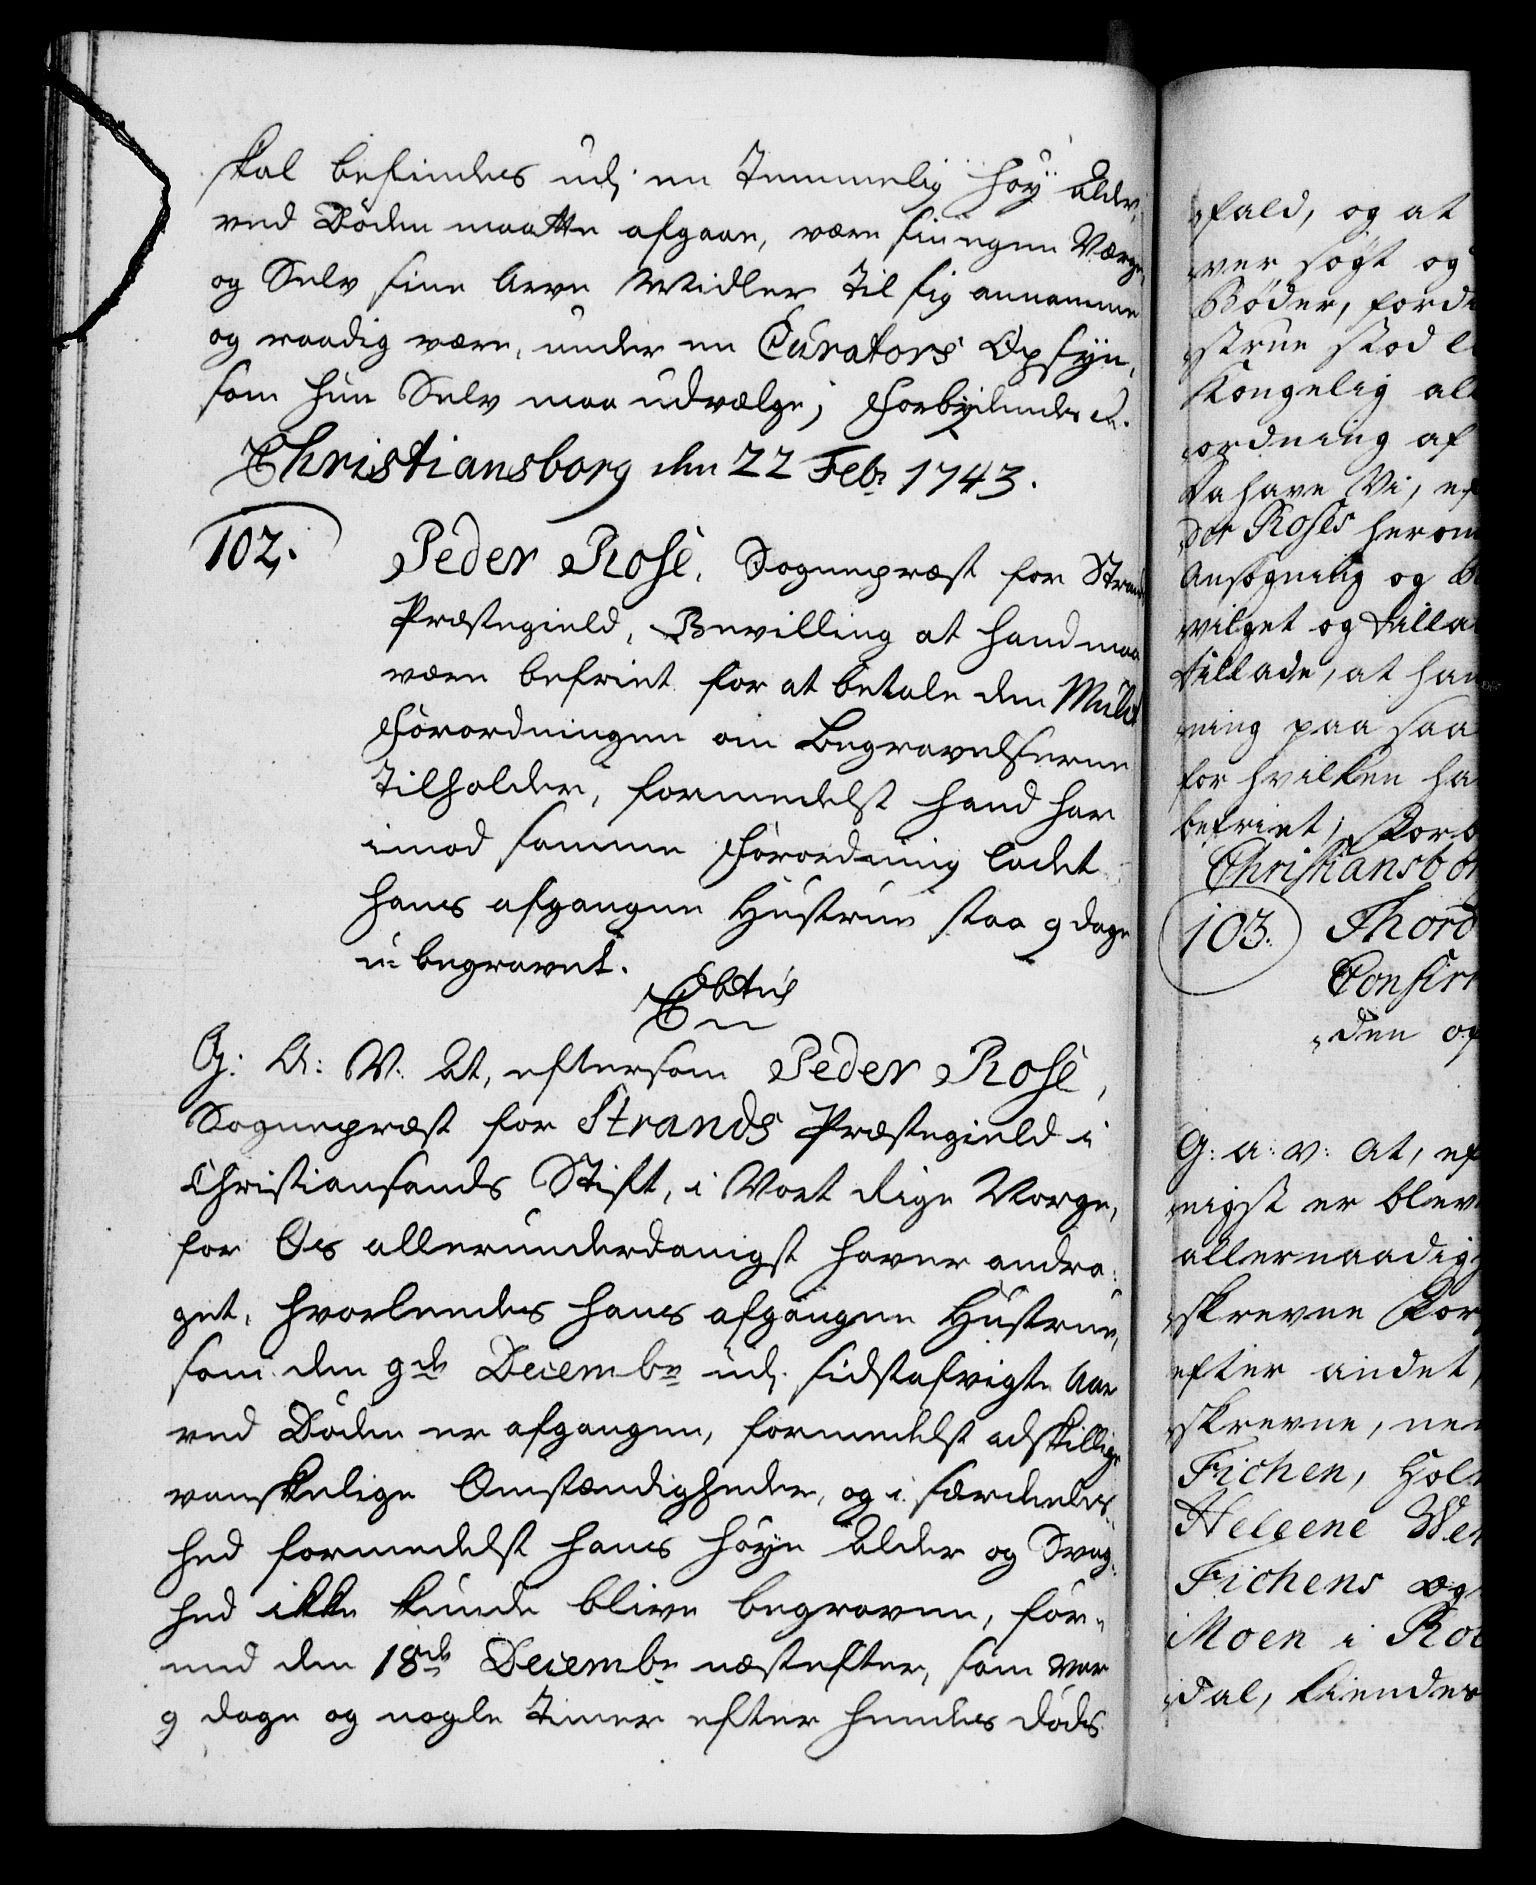 skal befindes udj en Temmelig høy Alder,
ved Døden maatte afgaae, være sin egen Værge,
og Selv sine Arve Midler til sig annamme
og raadig være, under en Curators Opsyn,
som hun Selv maa udvælge; Forbydendes &c.
Christiansborg den 22 Febr 1743.
102. Peder Rose, Sognepræst for Strands
Præstegield, Bevilling at hand maa
være befriet for at betale den Mulct
Forordningen om Begravelserne
tilholder, formedelst hand har
imod samme Forordning ladet
hans afgangne Hustrue staa 9 dage
u-begravet.
G: A: V: At, eftersom Peder Rose,
Sognepræst for Strands Præstegield i
Christiansands Stift, i Vort Rige Norge,
for Os allerunderdanigst haver andra-
get, hvorledes hans afgangne Hustrue,
som den 9de Decembr udj sidstafvigte Aar
ved Døden er afgangen, formedelst adskillige
vanskelige Omstændigheder, og i særdeles-
hed formedelst hans høye Alder og Svag-
hed ikke kunde blive begraven, før-
end den 18de Decembr næstefter, som var
9 dage og nogle Timer efter hendes Døds
-fald, og at
ver søgt og
Bøder, ford
strue stod
Kongelig all
ordning af
Da have Vi, ef
der Roses herom
Ansøgning og
vilget og tilla
tillade, at han
ning paa saa
for hvilken ha
befriet; Forb
Christiansbor
103. Thord
Confir
den op
G: A: V: At, ef
nigst er blev
allernaadig
skrevne For
efter andet,
skrevne, ne
Fichen, Hol
Heleene We
Fichens og
Moen i Ro
dal, kiendes